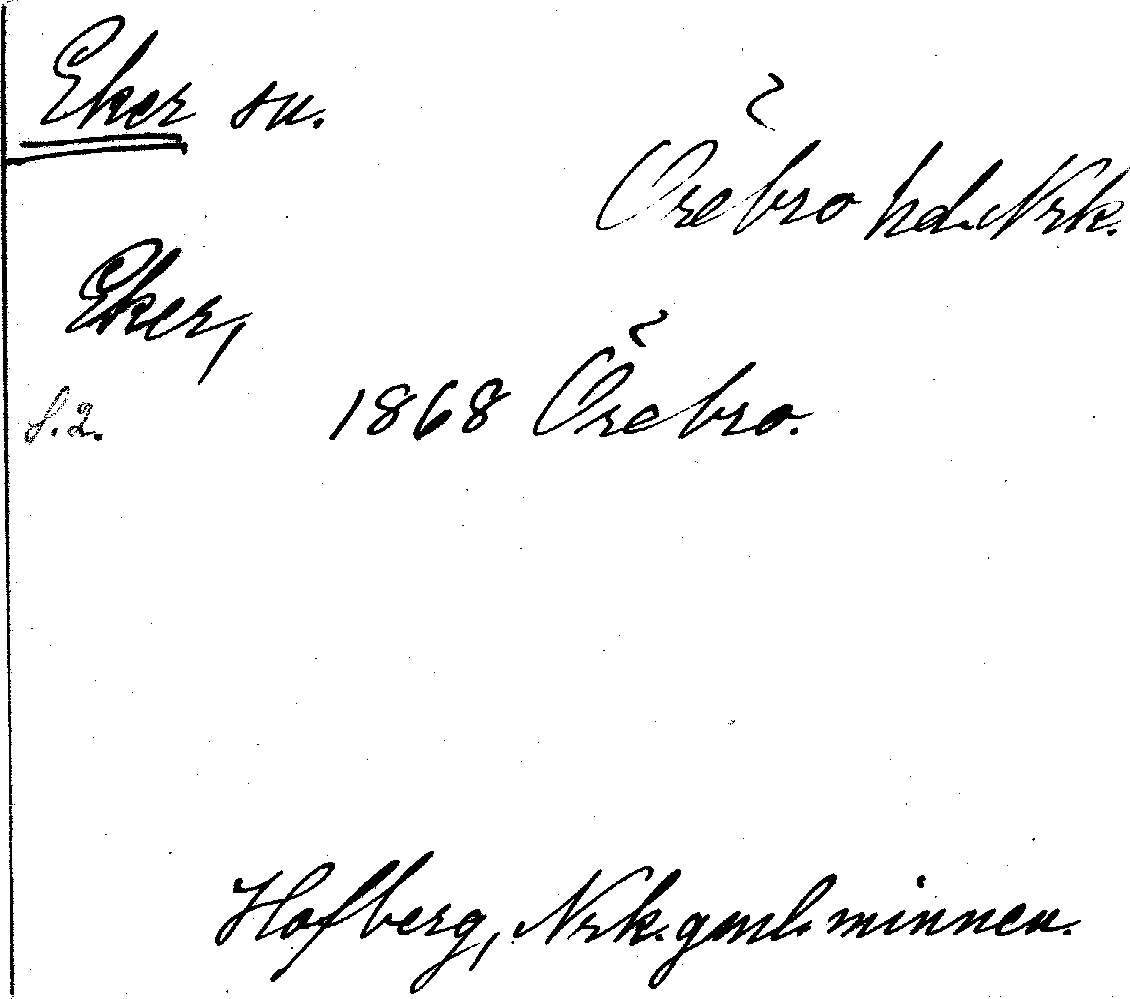 Eker sn.
Örebro hd. Nrk.
Eker,
S.2.
1868 Örebro.
Hofberg, Nrk. gml. minnen.